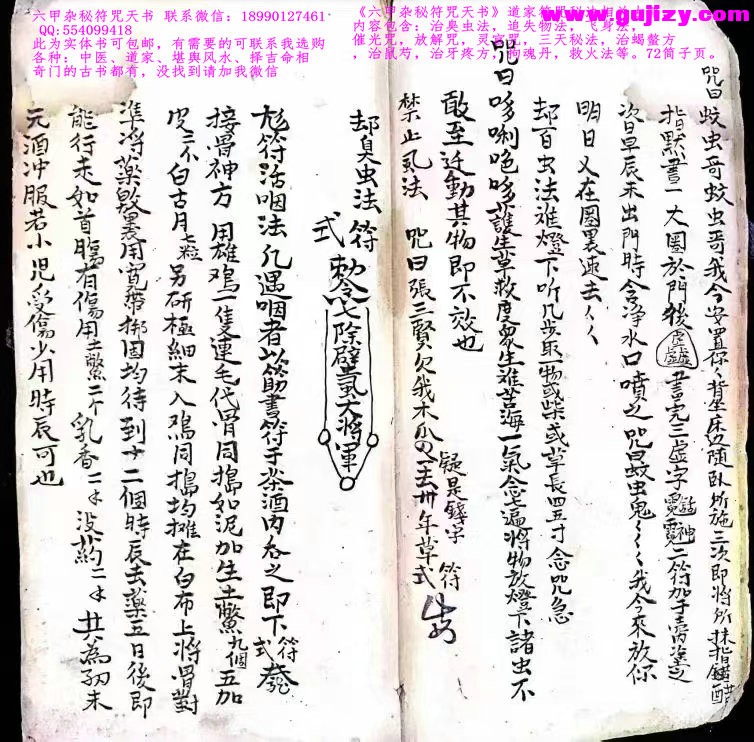 www.gujizy.com
六甲杂秘符咒天书 联系微信：18990127461
QQ:554099418
此为实体书可包邮，有需要的可联系我选购
各种：中医、道家、堪舆风水、择吉命相
奇门的古书都有，没找到请加我微信
《六甲杂秘符咒天书》道家符咒秘法
内容包含：治臭虫法，追失物法，飞身法，
催光咒，放解咒，灵官咒，三天秘法，治蝎螫方
，治鼠芍，治牙疼方，拘魂丹，救火法等。72筒子页。
咒曰 蚊虫哥蚊虫哥我今安置你々背坐床边随卧所施三次即将所抹指
指默書一大圈於門後 虚虚虚 書完三虚字 二符加于壳
次日早辰未出門時含净水口噴之咒曰蚊虫鬼々々々我今來放你
明日又在圈里速去く く
却百虫法 在燈下听几步取一物或柴或草長四五寸念咒急
咒曰哆唎吔哆 護生草救度衆生难苦海一氣念七遍將物放燈下諸虫不
敢至近動其物即不效也
禁止虱法 咒曰張三賢欠我木瓜 卅年草式 疑是錢字 符
却臭虫法 符式 勅令 除壁虱大將軍
符活咽法 凡遇咽者以筋書符于茶酒内吞之即下 符式
接骨神方 用雄鸡一隻連毛代骨同搗如泥加生土鱉九個五加
皮三不白古月七粒另研極細末入鸡同搗均摊在白布上將骨對
準將藥敷裹用寬帶綁固均待到十二個時辰去藥五日後即
能行走如首腸有傷用土鱉一个乳香二 没药二 共為細末
元酒冲服若小児受傷少用時辰可也